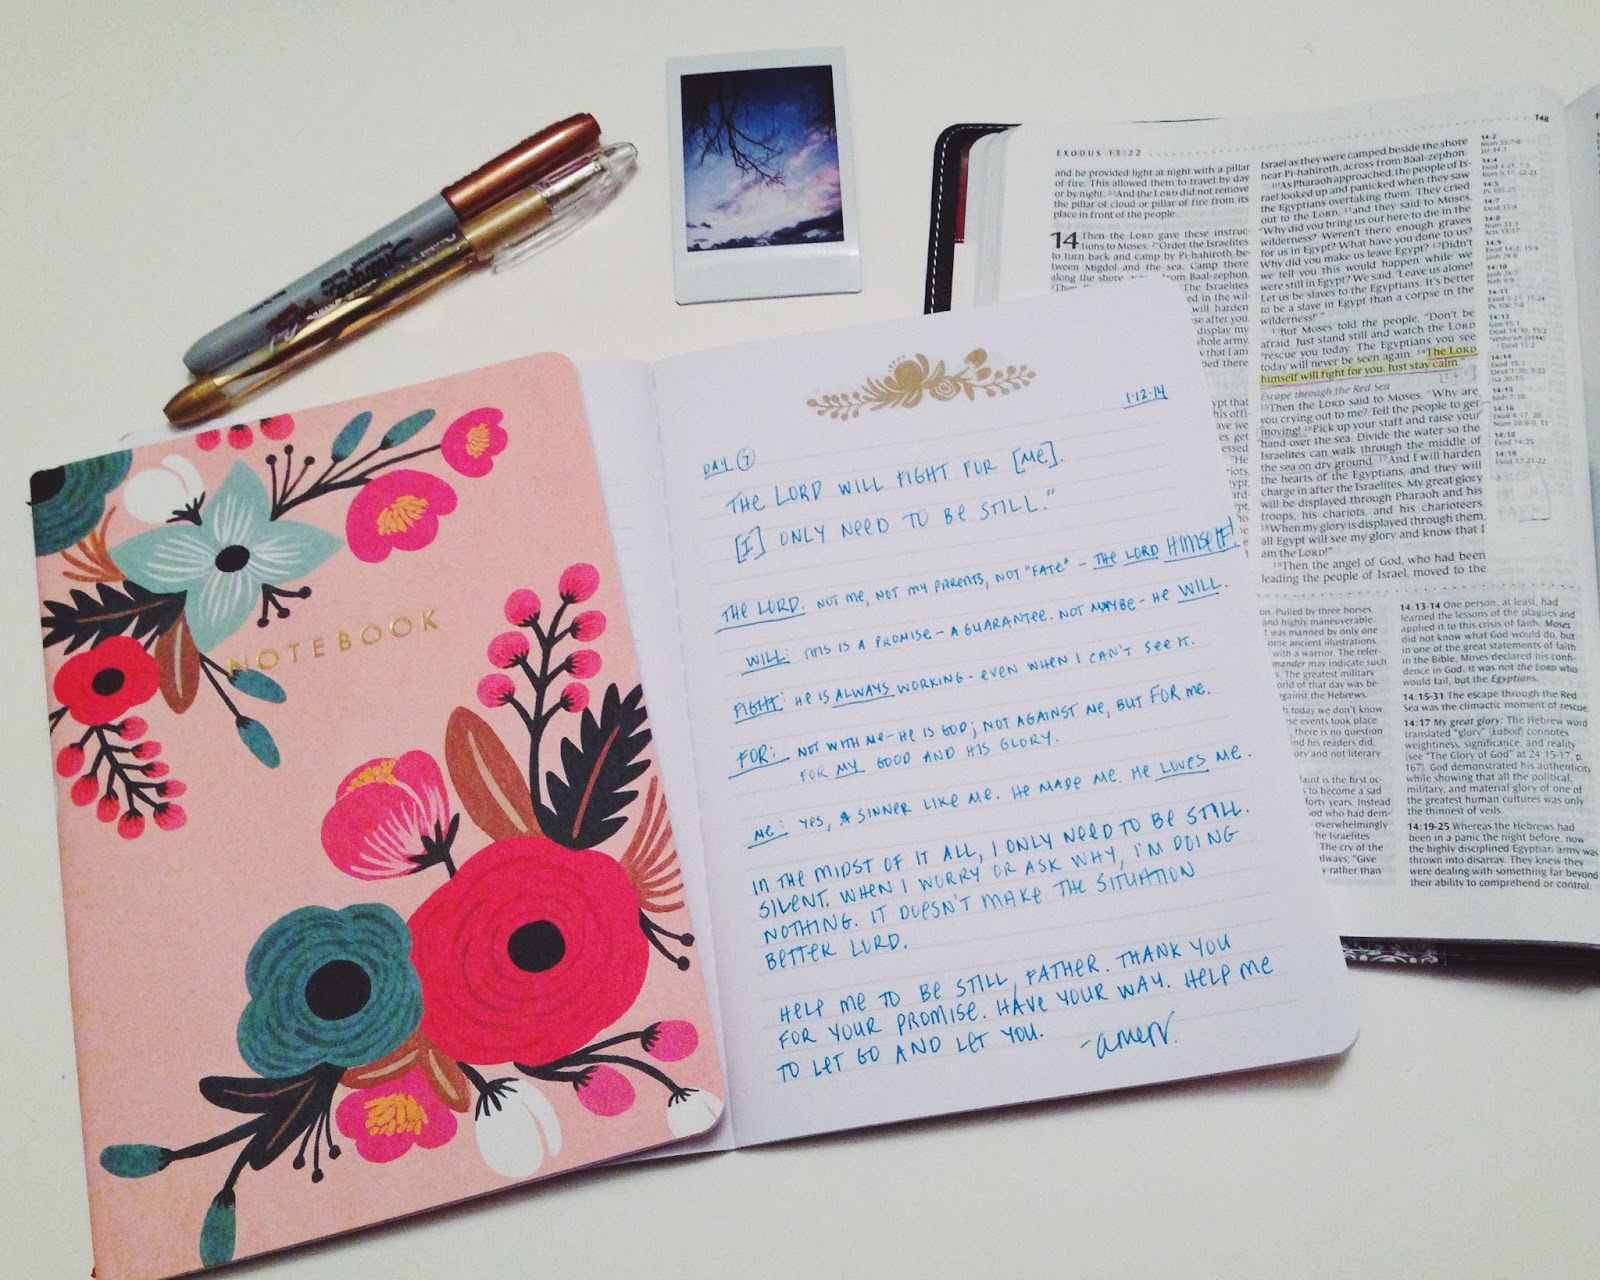 NOTEBOOK
1.12.14
DAY 7
THE LORD WILL FIGHT FOR [ME].
[I] ONLY NEED TO BE STILL."
THE LORD. NOT ME, NOT MY PARENTS, NOT "FATE" - THE LORD HIMSELF!
WILL: THIS IS A PROMISE - A GUARANTEE. NOT MAYBE - HE WILL.
FIGHT: HE IS ALWAYS WORKING - EVEN WHEN I CAN'T SEE IT.
FOR: NOT WITH ME - HE IS GOD; NOT AGAINST ME, BUT FOR ME.
FOR MY GOOD AND HIS GLORY.
ME: YES, A SINNER LIKE ME. HE MADE ME. HE LOVES ME.
IN THE MIDST OF IT ALL, I ONLY NEED TO BE STILL.
SILENT. WHEN I WORRY OR ASK WHY, I'M DOING
NOTHING. IT DOESN'T MAKE THE SITUATION
BETTER LORD.
HELP ME TO BE STILL, FATHER. THANK YOU
FOR YOUR PROMISE. HAVE YOUR WAY. HELP ME
TO LET GO AND LET YOU.
-amen.
EXODUS 13:22
148
and he provided light at night with a pillar
of fire. This allowed them to travel by day
or by night. 22And the LORD did not remove
the pillar of cloud or pillar of fire from its
place in front of the people.
14 Then the LORD gave these instruc-
tions to Moses: 2"Order the Israelites
to turn back and camp by Pi-hahiroth be-
tween Migdol and the sea. Camp there
along the shore, from Baal-zephon.
The Israelites
ed in the wil-
will harden
se after you.
display my
whole army.
y that I am
ped there
Israel as they were camped beside the shore
near Pi-hahiroth, across from Baal-zephon.
10As Pharaoh approached, the people of Is-
rael looked up and panicked when they saw
the Egyptians overtaking them. They cried
out to the LORD, 11and they said to Moses,
"Why did you bring us out here to die in the
wilderness? Weren't there enough graves
for us in Egypt? What have you done to us?
Why did you make us leave Egypt? 12Didn't
we tell you this would happen while we
were still in Egypt? We said, 'Leave us alone!
Let us be slaves to the Egyptians. It's better
to be a slave in Egypt than a corpse in the
wilderness!'"
13But Moses told the people, "Don't be
afraid. Just stand still and watch the LORD
rescue you today. The Egyptians you see
today will never be seen again. 14The LORD
himself will fight for you. Just stay calm."
Escape through the Red Sea
15Then the LORD said to Moses, "Why are
you crying out to me? Tell the people to get
moving! 16Pick up your staff and raise your
hand over the sea. Divide the water so the
Israelites can walk through the middle of
the sea on dry ground. 17And I will harden
the hearts of the Egyptians, and they will
charge in after the Israelites. My great glory
will be displayed through Pharaoh and his
troops, his chariots, and his charioteers.
18When my glory is displayed through them,
all Egypt will see my glory and know that I
am the LORD!"
19Then the angel of God, who had been
leading the people of Israel, moved to the
14:13-14 One person, at least, had
learned the lessons of the plagues and
applied it to this crisis of faith. Moses
did not know what God would do, but
in one of the great statements of faith
in the Bible, Moses declared his confi-
dence in God. It was not the LORD who
would fail, but the Egyptians.
14:15-31 The escape through the Red
Sea was the climactic moment of rescue.
14:17 My great glory: The Hebrew word
translated "glory" (kabod) connotes
weightiness, significance, and reality
(see "The Glory of God" at 24:15-17, p.
167). God demonstrated his authenticity
while showing that all the political,
military, and material glory of one of
the greatest human cultures was only
the thinnest of veils.
14:19-25 Whereas the Hebrews had
been in a panic the night before, now
the highly disciplined Egyptian army was
thrown into disarray. They knew they
were dealing with something far beyond
their ability to comprehend or control.